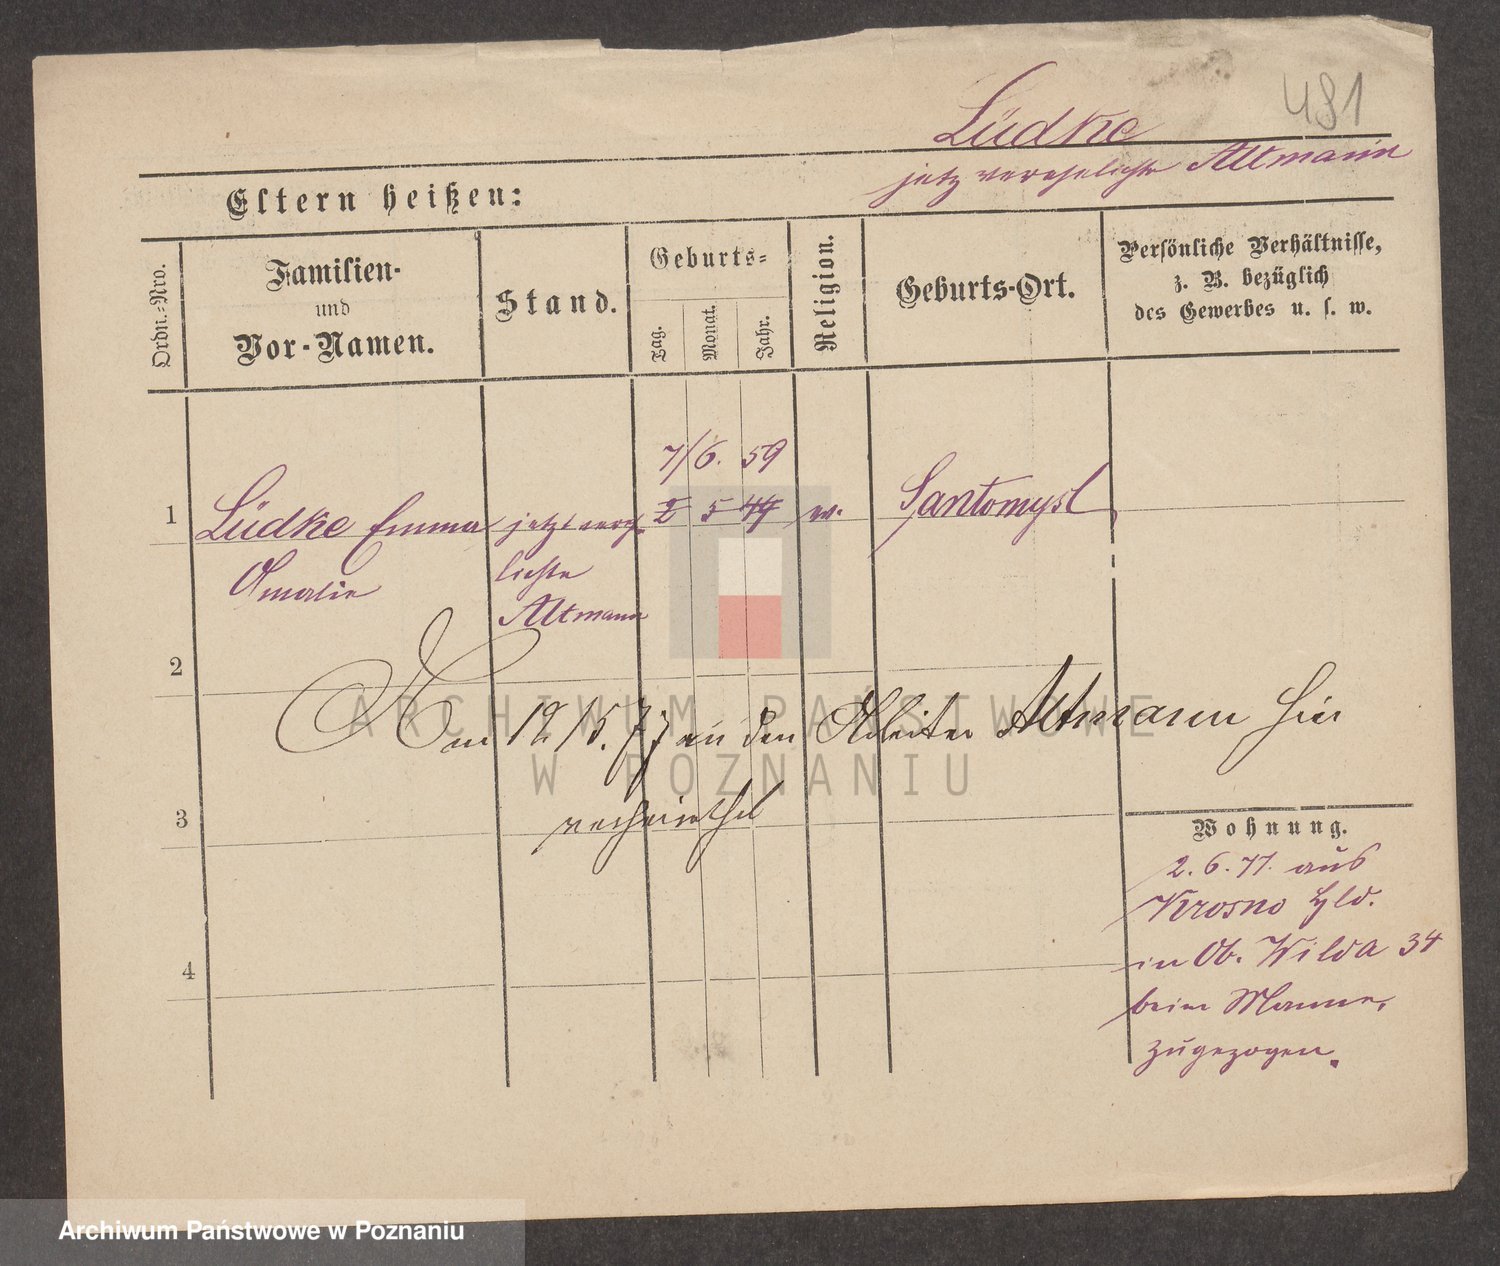 481
Lüdke
jetz verehelichte Altmann
Eltern heißen:
Ordn.-Nro.
Familien-
und
Vor-Namen.
Stand.
Geburts-
Tag.
Monat.
Jahr.
Religion.
Geburts-Ort.
Persönliche Verhältnisse,
z. B. bezüglich
des Gewerbes u. s. w.
7/6. 59
1 Lüdke Emma jetzt vereh- 2 5 44 ev. Santomysl
Amalie lichte
Altmann
2
Am 12/5. 77 an den Arbeiter Altmann hier
verheirathet
3
Wohnung.
2. 6. 77. aus
Krosno Hld.
in Ob. Wilda 34
beim Manne,
zugezogen.
4
ARCHIWUM PAŃSTWOWE
W POZNANIU
Archiwum Państwowe w Poznaniu